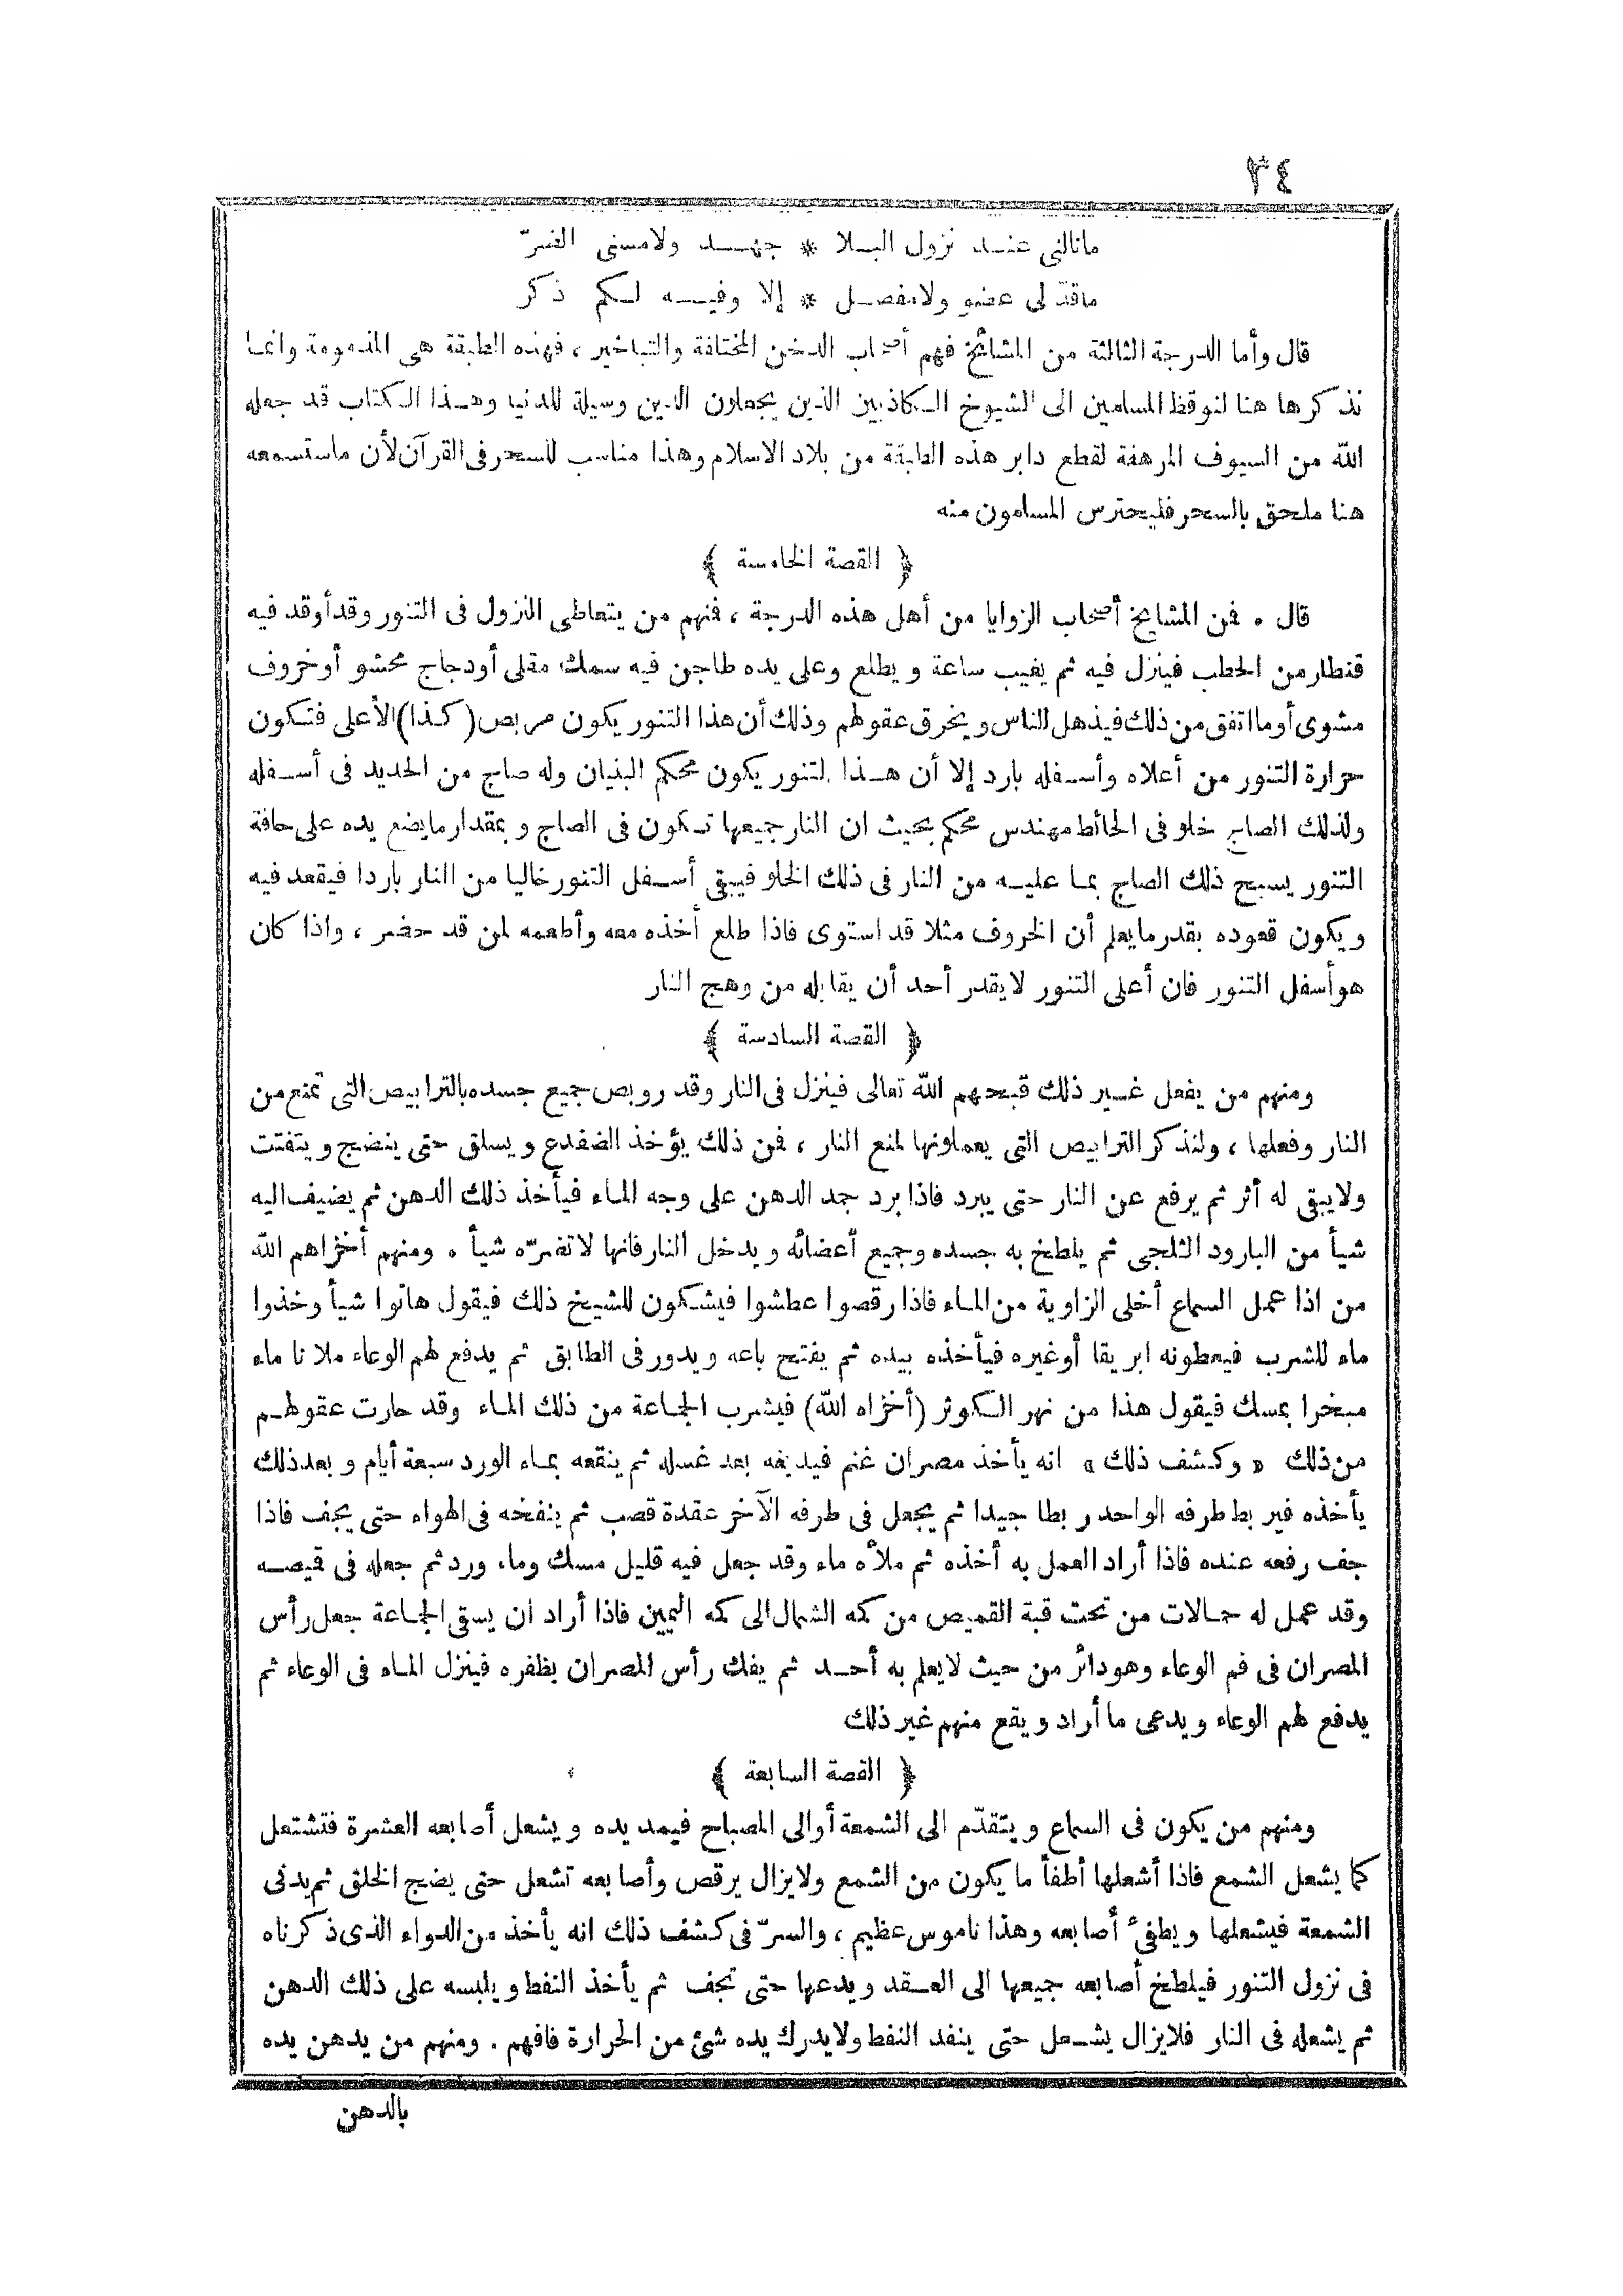 ٣٤
مانالني عند نزول البلا * جهد ولامسني الضرّ
ماقدّ لي عضو ولامفصل * إلا وفيه لكم ذكر
قال وأما الدرجة الثالثة من المشايخ فهم أصحاب الدخن المختلفة والتباخير ، فهذه الطبقة هى المذمومة وانما
نذكرها هنا لنوقظ المسلمين الى الشيوخ الكاذبين الذين يجعلون الدين وسيلة للدنيا وهذا الكتاب قد جعله
الله من السيوف المرهفة لقطع دابر هذه الطبقة من بلاد الاسلام وهذا مناسب للسحر فى القرآن لأن ماستسمعه
هنا ملحق بالسحر فليحترس المسلمون منه
﴿ القصة الخامسة ﴾
قال . فمن المشايخ أصحاب الزوايا من أهل هذه الدرجة ، فمنهم من يتعاطى النزول فى التنور وقد أوقد فيه
قنطار من الحطب فينزل فيه ثم يغيب ساعة ويطلع وعلى يده طاجن فيه سمك مقلى أودجاج محشو أوخروف
مشوى أوما اتفق من ذلك فيذهل الناس ويخرق عقولهم وذلك أن هذا التنور يكون مربص (كذا) الأعلى فتكون
حرارة التنور من أعلاه وأسفله بارد إلا أن هذا التنور يكون محكم البنيان وله صاج من الحديد فى أسفله
ولذلك الصاج خلو فى الحائط مهندس محكم بحيث ان النار جميعها تكون فى الصاج وبمقدار مايضع يده على حافة
التنور يسبح ذلك الصاج بما عليه من النار فى ذلك الخلو فيبقى أسفل التنور خاليا من النار باردا فيقعد فيه
ويكون قعوده بقدر مايعلم أن الخروف مثلا قد استوى فاذا طلع أخذه معه وأطعمه لمن قد حضر ، واذا كان
هو أسفل التنور فان أعلى التنور لايقدر أحد أن يقابله من وهج النار
﴿ القصة السادسة ﴾
ومنهم من يفعل غير ذلك قبحهم الله تعالى فينزل فى النار وقد روبص جميع جسده بالترابيص التى تمنع من
النار وفعلها ، ولنذكر الترابيص التى يعملونها لمنع النار ، فمن ذلك يؤخذ الضفدع ويسلق حتى ينضج ويتفتت
ولايبقى له أثر ثم يرفع عن النار حتى يبرد فاذا برد جمد الدهن على وجه الماء فيأخذ ذلك الدهن ثم يضيف اليه
شيأ من البارود الثلجى ثم يلطخ به جسده وجميع أعضائه ويدخل النار فانها لاتضرّه شيأ . ومنهم أخزاهم الله
من اذا عمل السماع أخلى الزاوية من الماء فاذا رقصوا عطشوا فيشكون للشيخ ذلك فيقول هاتوا شيأ وخذوا
ماء للشرب فيعطونه ابريقا أوغيره فيأخذه بيده ثم يفتح باعه ويدور فى الطابق ثم يدفع لهم الوعاء ملانا ماء
مبخرا بمسك فيقول هذا من نهر الكوثر (أخزاه الله) فيشرب الجماعة من ذلك الماء وقد حارت عقولهم
من ذلك « وكشف ذلك » انه يأخذ مصران غنم فيدبغه بعد غسله ثم ينقعه بماء الورد سبعة أيام وبعد ذلك
يأخذه فيربط طرفه الواحد ربطا جيدا ثم يجعل فى طرفه الآخر عقدة قصب ثم ينفخه فى الهواء حتى يجف فاذا
جف رفعه عنده فاذا أراد العمل به أخذه ثم ملأه ماء وقد جعل فيه قليل مسك وماء ورد ثم جعله فى قميصه
وقد عمل له حمالات من تحت قبة القميص من كمه الشمال الى كمه اليمين فاذا أراد ان يسقى الجماعة جعل رأس
المصران فى فم الوعاء وهو دائر من حيث لايعلم به أحد ثم يفك رأس المصران بظفره فينزل الماء فى الوعاء ثم
يدفع لهم الوعاء ويدعى ما أراد ويقع منهم غير ذلك
﴿ القصة السابعة ﴾
ومنهم من يكون فى السماع ويتقدّم الى الشمعة أوالى المصباح فيمد يده ويشعل أصابعه العشرة فتشتعل
كما يشعل الشمع فاذا أشعلها أطفأ ما يكون من الشمع ولايزال يرقص وأصابعه تشعل حتى يضج الخلق ثم يدنى
الشمعة فيشعلها ويطفئ أصابعه وهذا ناموس عظيم ، والسرّ فى كشف ذلك انه يأخذ من الدواء الذى ذكرناه
فى نزول التنور فيلطخ أصابعه جميعها الى العقد ويدعها حتى تجف ثم يأخذ النفط ويلبسه على ذلك الدهن
ثم يشعله فى النار فلايزال يشعل حتى ينفد النفط ولايدرك يده شئ من الحرارة فافهم . ومنهم من يدهن يده
بالدهن